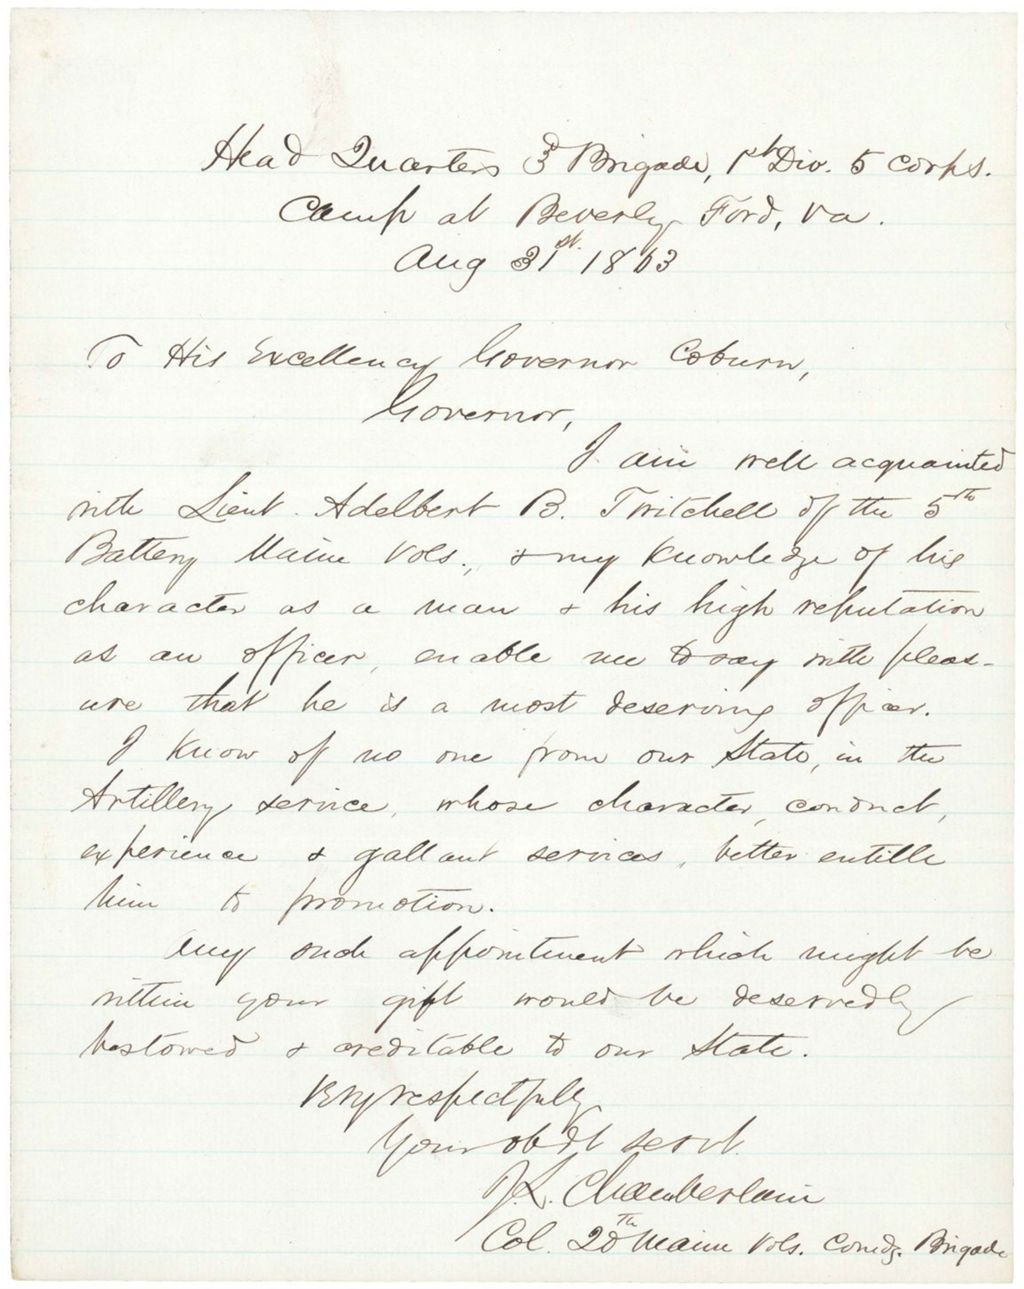 Head Quarters 3d Brigade, 1st Div. 5 Corps.
Camp at Beverly Ford, Va.
Aug 31st 1863
To His Excellency Governor Coburn,
Governor,
I am well acquainted
with Lieut. Adelbert B. Twitchell of the 5th
Battery Maine Vols., & my knowledge of his
character as a man & his high reputation
as an officer, enable me to say with pleas-
ure that he is a most deserving officer.
I know of no one from our State, in the
Artillery service, whose character, conduct,
experience & gallant services, better entitle
him to promotion.
Any such appointment which might be
within your gift would be deservedly
bestowed & creditable to our State.
Very respectfully
Your obdt servt.
J. L. Chamberlain
Col. 20th Maine Vols. Comdg. Brigade